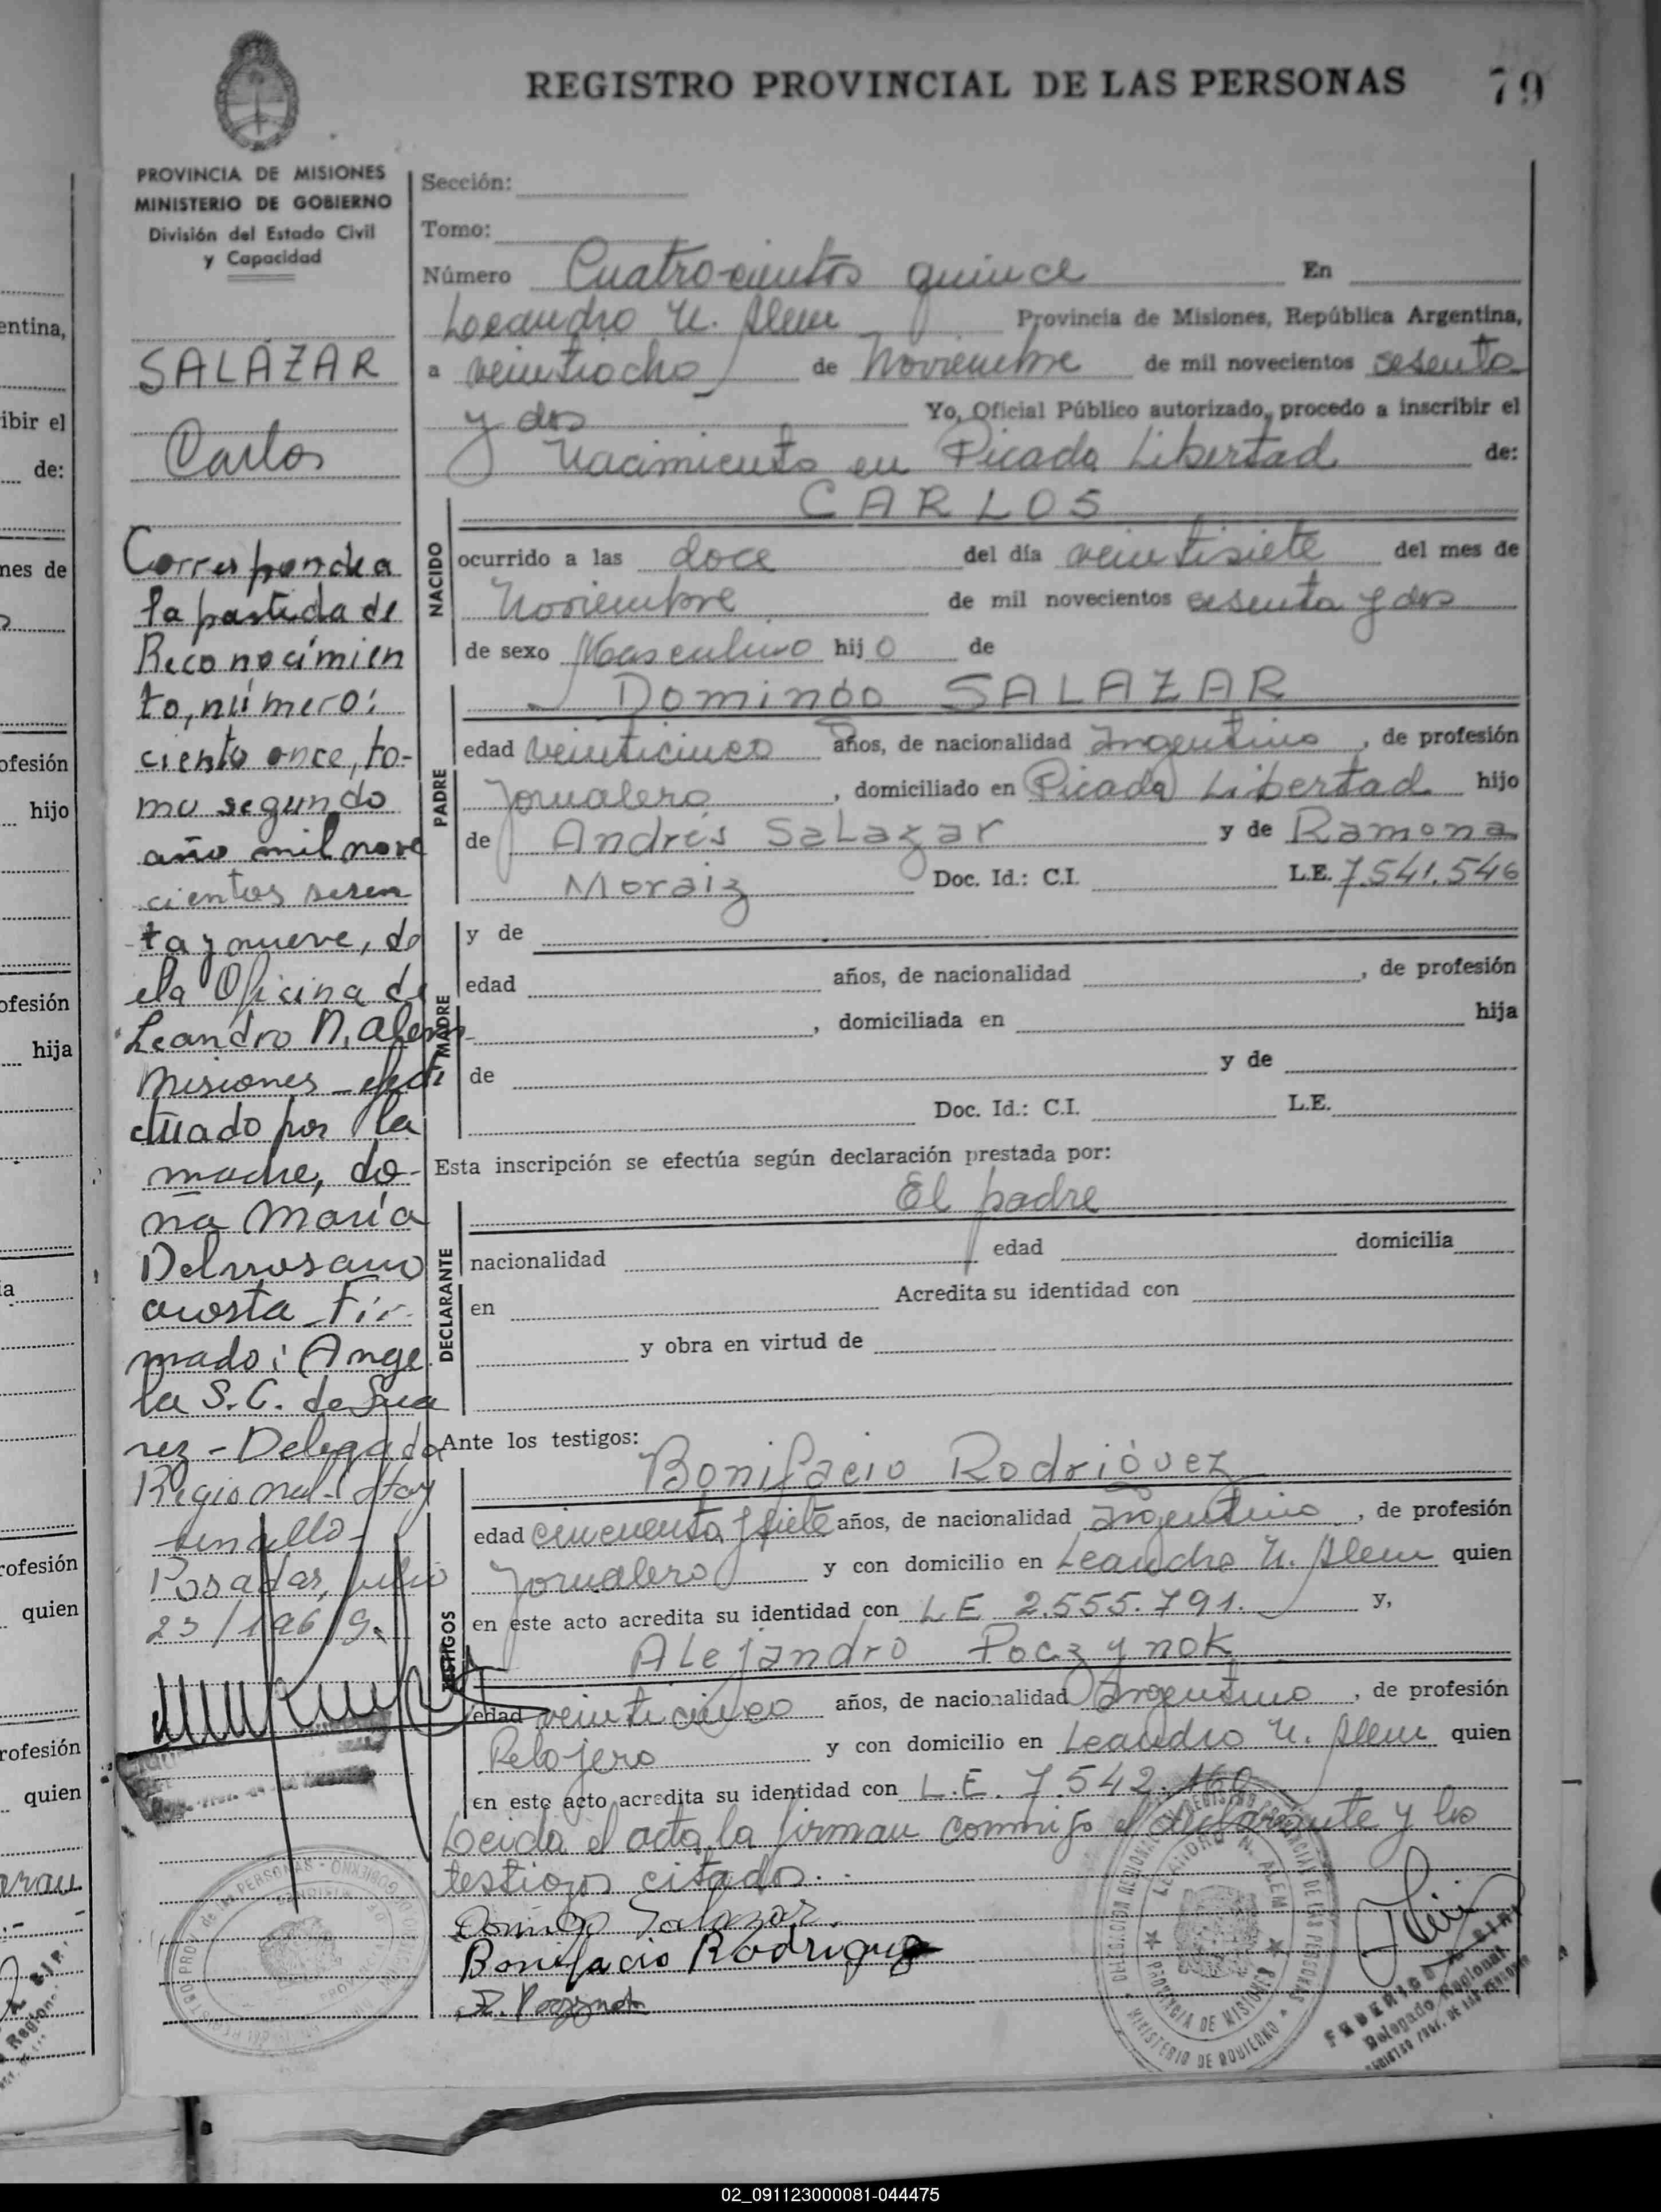 REGISTRO PROVINCIAL DE LAS PERSONAS 79
PROVINCIA DE MISIONES
MINISTERIO DE GOBIERNO
División del Estado Civil
y Capacidad
SALAZAR
Carlos
Corresponde a
la partida de
Reconocimien
to, número:
ciento once, to-
mo segundo
año mil nove
cientos sesen
ta y nueve, de
la Oficina de
Leandro N. Alem
Misiones - efec
tuado por la
madre, do-
ña María
Del rosario
acosta Fir-
mado: Ange
la S. C. de Sua
rez - Delegada
Regional - Hay
un sello -
Posadas, julio
23/1969.
Sección:
Tomo:
Número Cuatrocientos quince En
Leandro N. Alem Provincia de Misiones, República Argentina,
a veintiocho de Noviembre de mil novecientos sesenta
y dos Yo, Oficial Público autorizado, procedo a inscribir el
Nacimiento en Picada Libertad de:
CARLOS
NACIDO
ocurrido a las doce del día veintisiete del mes de
Noviembre de mil novecientos sesenta y dos
de sexo Masculino hijo de
Domingo SALAZAR
PADRE
edad veinticinco años, de nacionalidad Argentino, de profesión
Jornalero, domiciliado en Picada Libertad hijo
de Andrés Salazar y de Ramona
Moraiz Doc. Id.: C.I. L.E. 7.541.546
MADRE
y de
edad años, de nacionalidad , de profesión
, domiciliada en hija
de y de
Doc. Id.: C.I. L.E.
Esta inscripción se efectúa según declaración prestada por:
El padre
DECLARANTE
nacionalidad edad domicilia
en Acredita su identidad con
y obra en virtud de
Ante los testigos:
Bonifacio Rodriguez
TESTIGOS
edad cincuenta y siete años, de nacionalidad Argentino, de profesión
Jornalero y con domicilio en Leandro N. Alem quien
en este acto acredita su identidad con L E 2.555.791. y,
Alejandro Poczynok
edad veinticinco años, de nacionalidad Argentino, de profesión
Relojero y con domicilio en Leandro N. Alem quien
en este acto acredita su identidad con L.E. 7.542.160
Leida el acta, la firman conmigo el declarante y los
testigos citados.
Domingo Salazar.
Bonifacio Rodriguez
LEANDRO N. ALEM
PROVINCIA DE MISIONES
Delegado Regional
entina,
ibir el
de:
nes de
ofesión
hijo
ofesión
hija
rofesión
quien
rofesión
quien
02_091123000081-044475